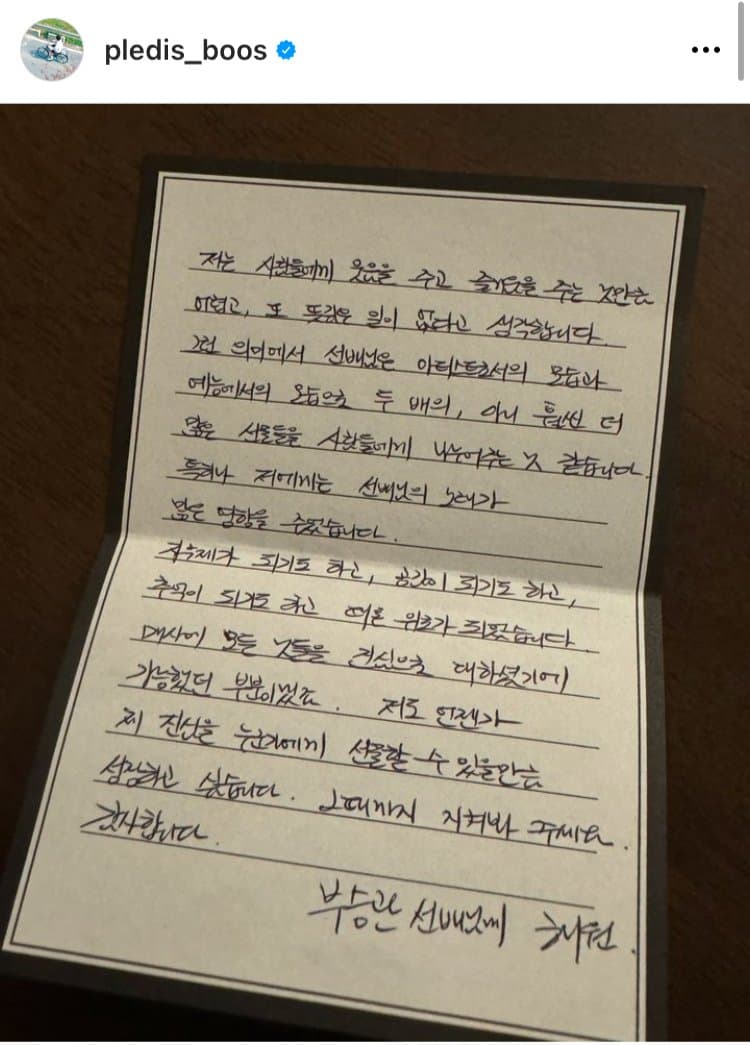 pledis_boos
저는 사람들에게 웃음을 주고 즐거움을 주는 것만큼
어렵고, 또 뜻깊은 일이 없다고 생각합니다.
그런 의미에서 선배님은 아티스트로서의 모습과
예능에서의 모습으로 두 배의, 아니 훨씬 더
많은 선물들을 사람들에게 나누어주는 것 같습니다.
특히나 저에게는 선배님의 노래가
많은 영향을 주었습니다.
자극제가 되기도 하고, 공감이 되기도 하고,
추억이 되기도 하고 때론 위로가 되었습니다.
매사에 모든 것들을 진심으로 대하셨기에
가능했던 부분이었죠. 저도 언젠가
제 진심을 누군가에게 선물할 수 있을만큼
성장하고 싶습니다. 그때까지 지켜봐 주세요.
감사합니다.
부승관 선배님께